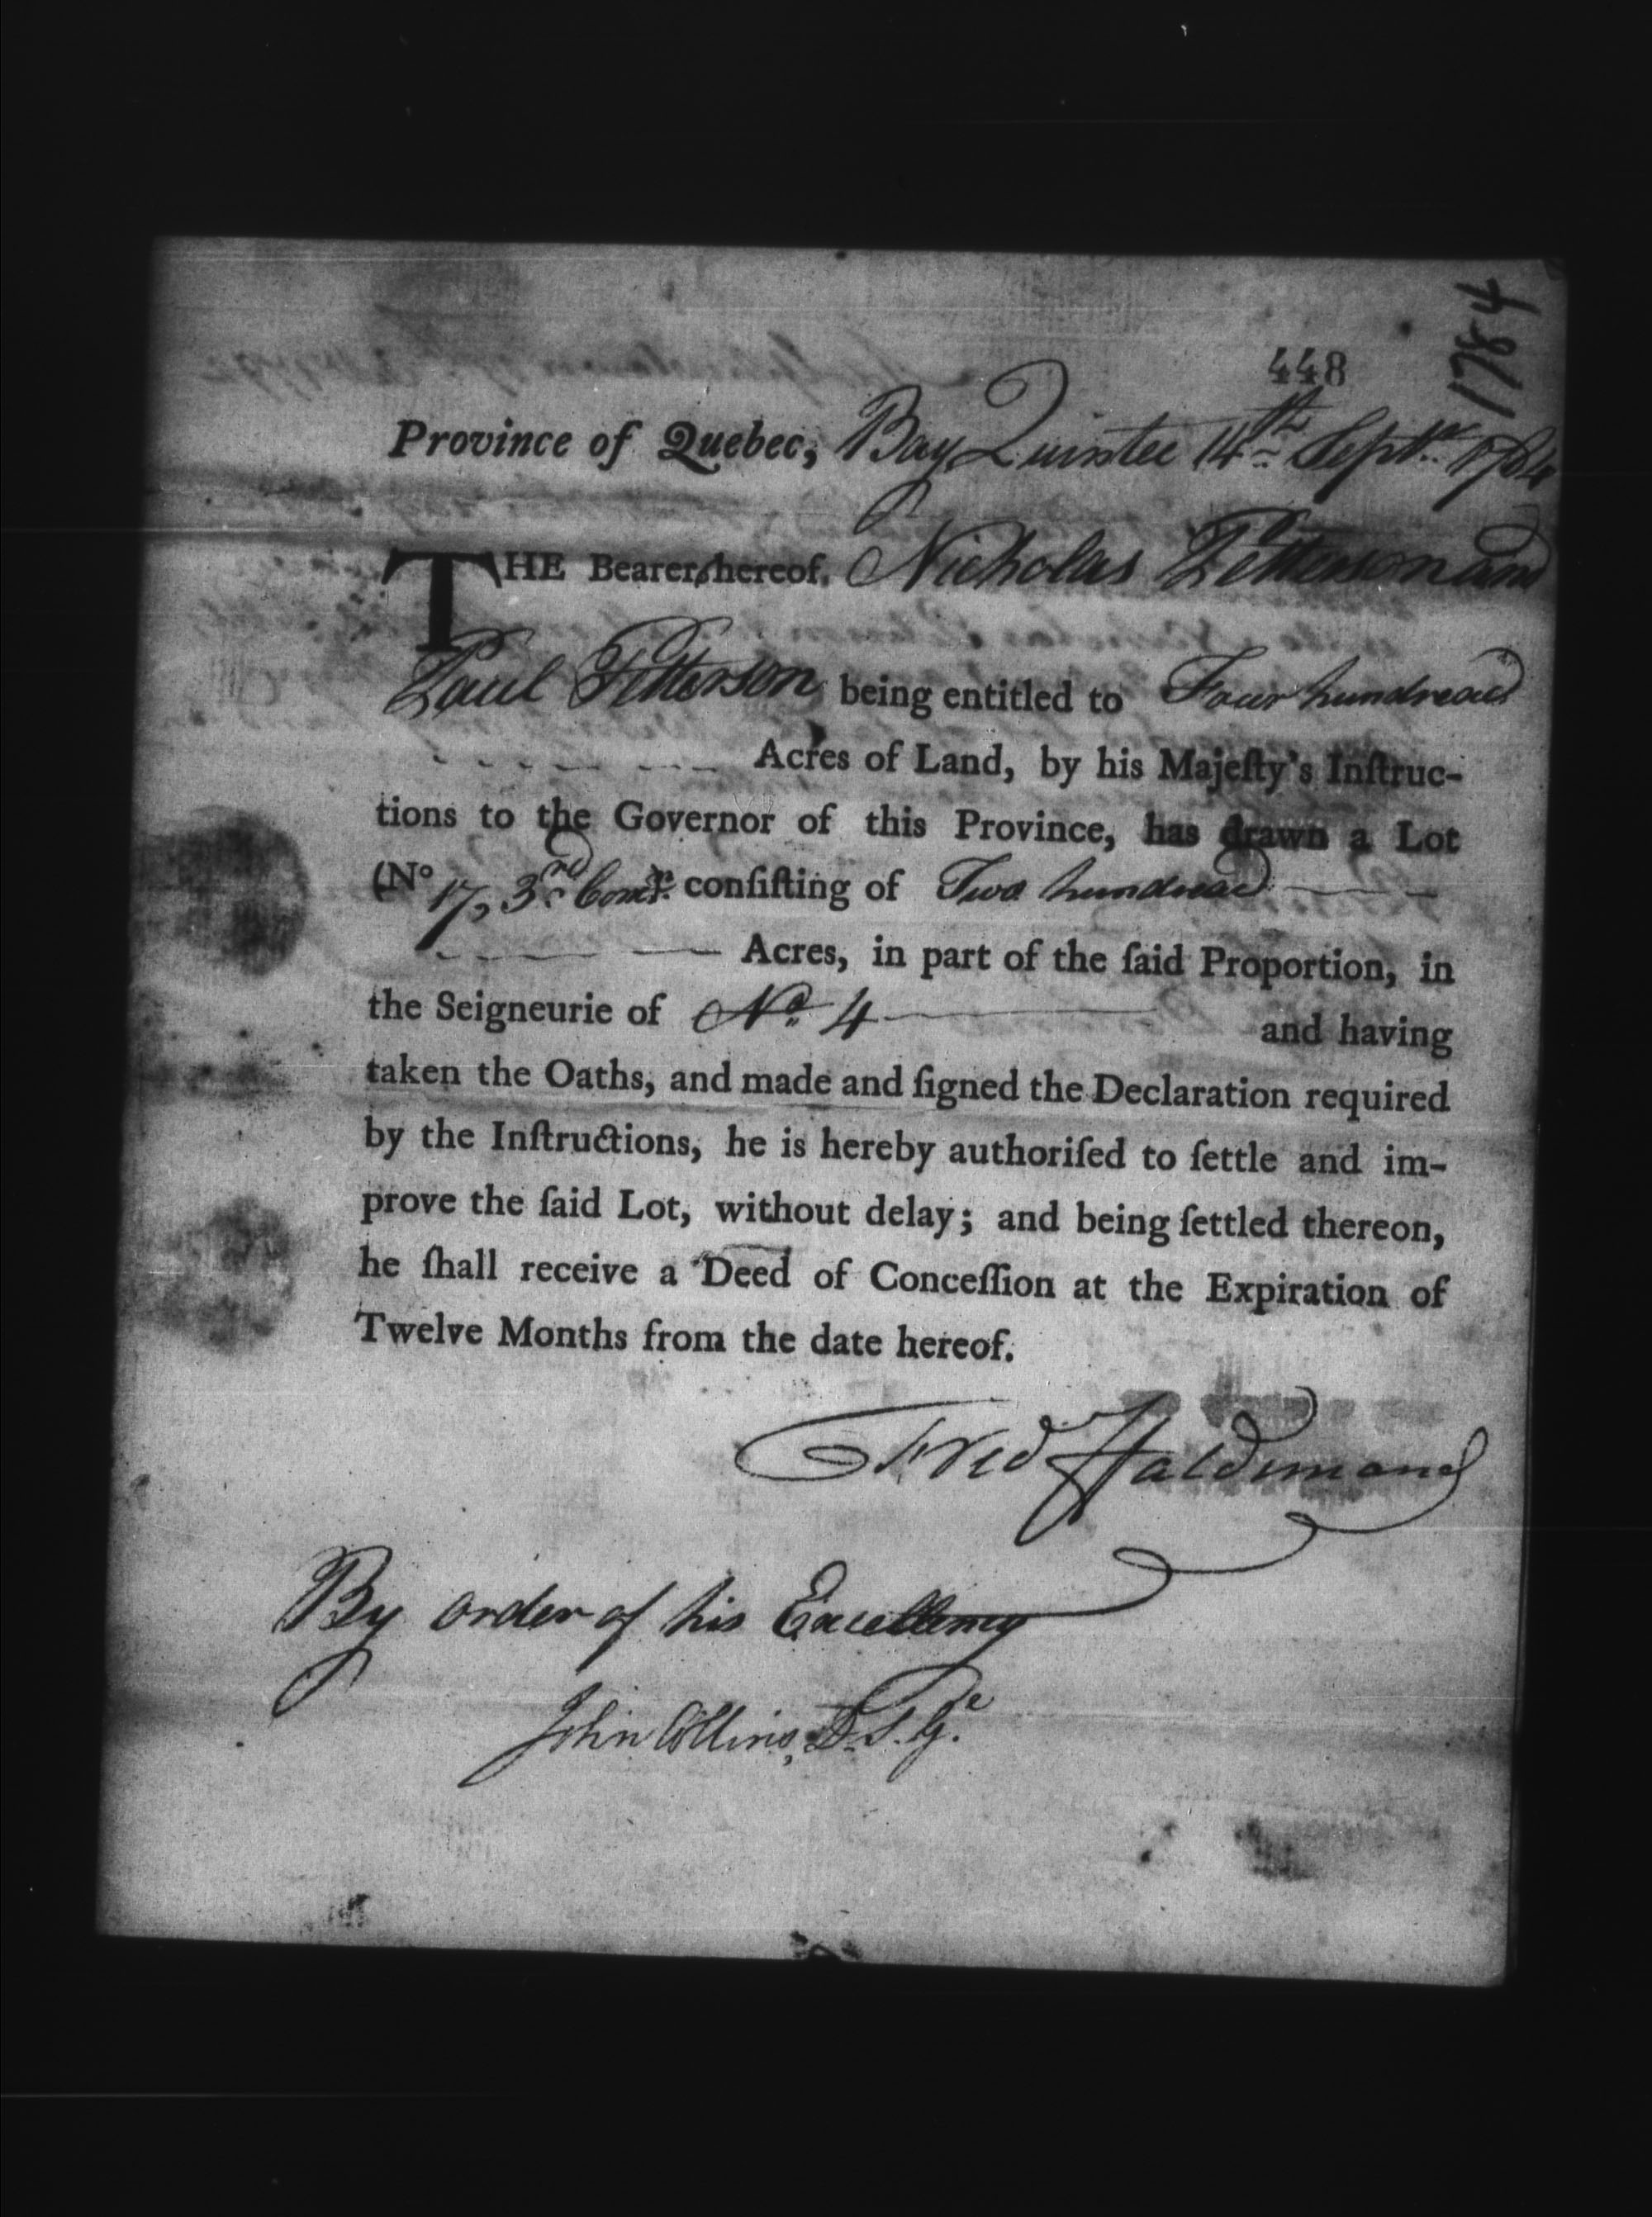 1784
448
Province of Quebec, Bay Quintee 14th Septr 1784
THE Bearers hereof, Nicholas Petterson and
Paul Petterson being entitled to Four hundread
Acres of Land, by his Majeſty's Inſtruc-
tions to the Governor of this Province, has drawn a Lot
(No 17, 3rd Conc. conſiſting of Two hundread
Acres, in part of the ſaid Proportion, in
the Seigneurie of No. 4 and having
taken the Oaths, and made and ſigned the Declaration required
by the Inſtructions, he is hereby authoriſed to ſettle and im-
prove the ſaid Lot, without delay; and being ſettled thereon,
he ſhall receive a Deed of Conceſſion at the Expiration of
Twelve Months from the date hereof.
Fred Haldimand
By order of his Excellency
John Collins, D.S.Ge